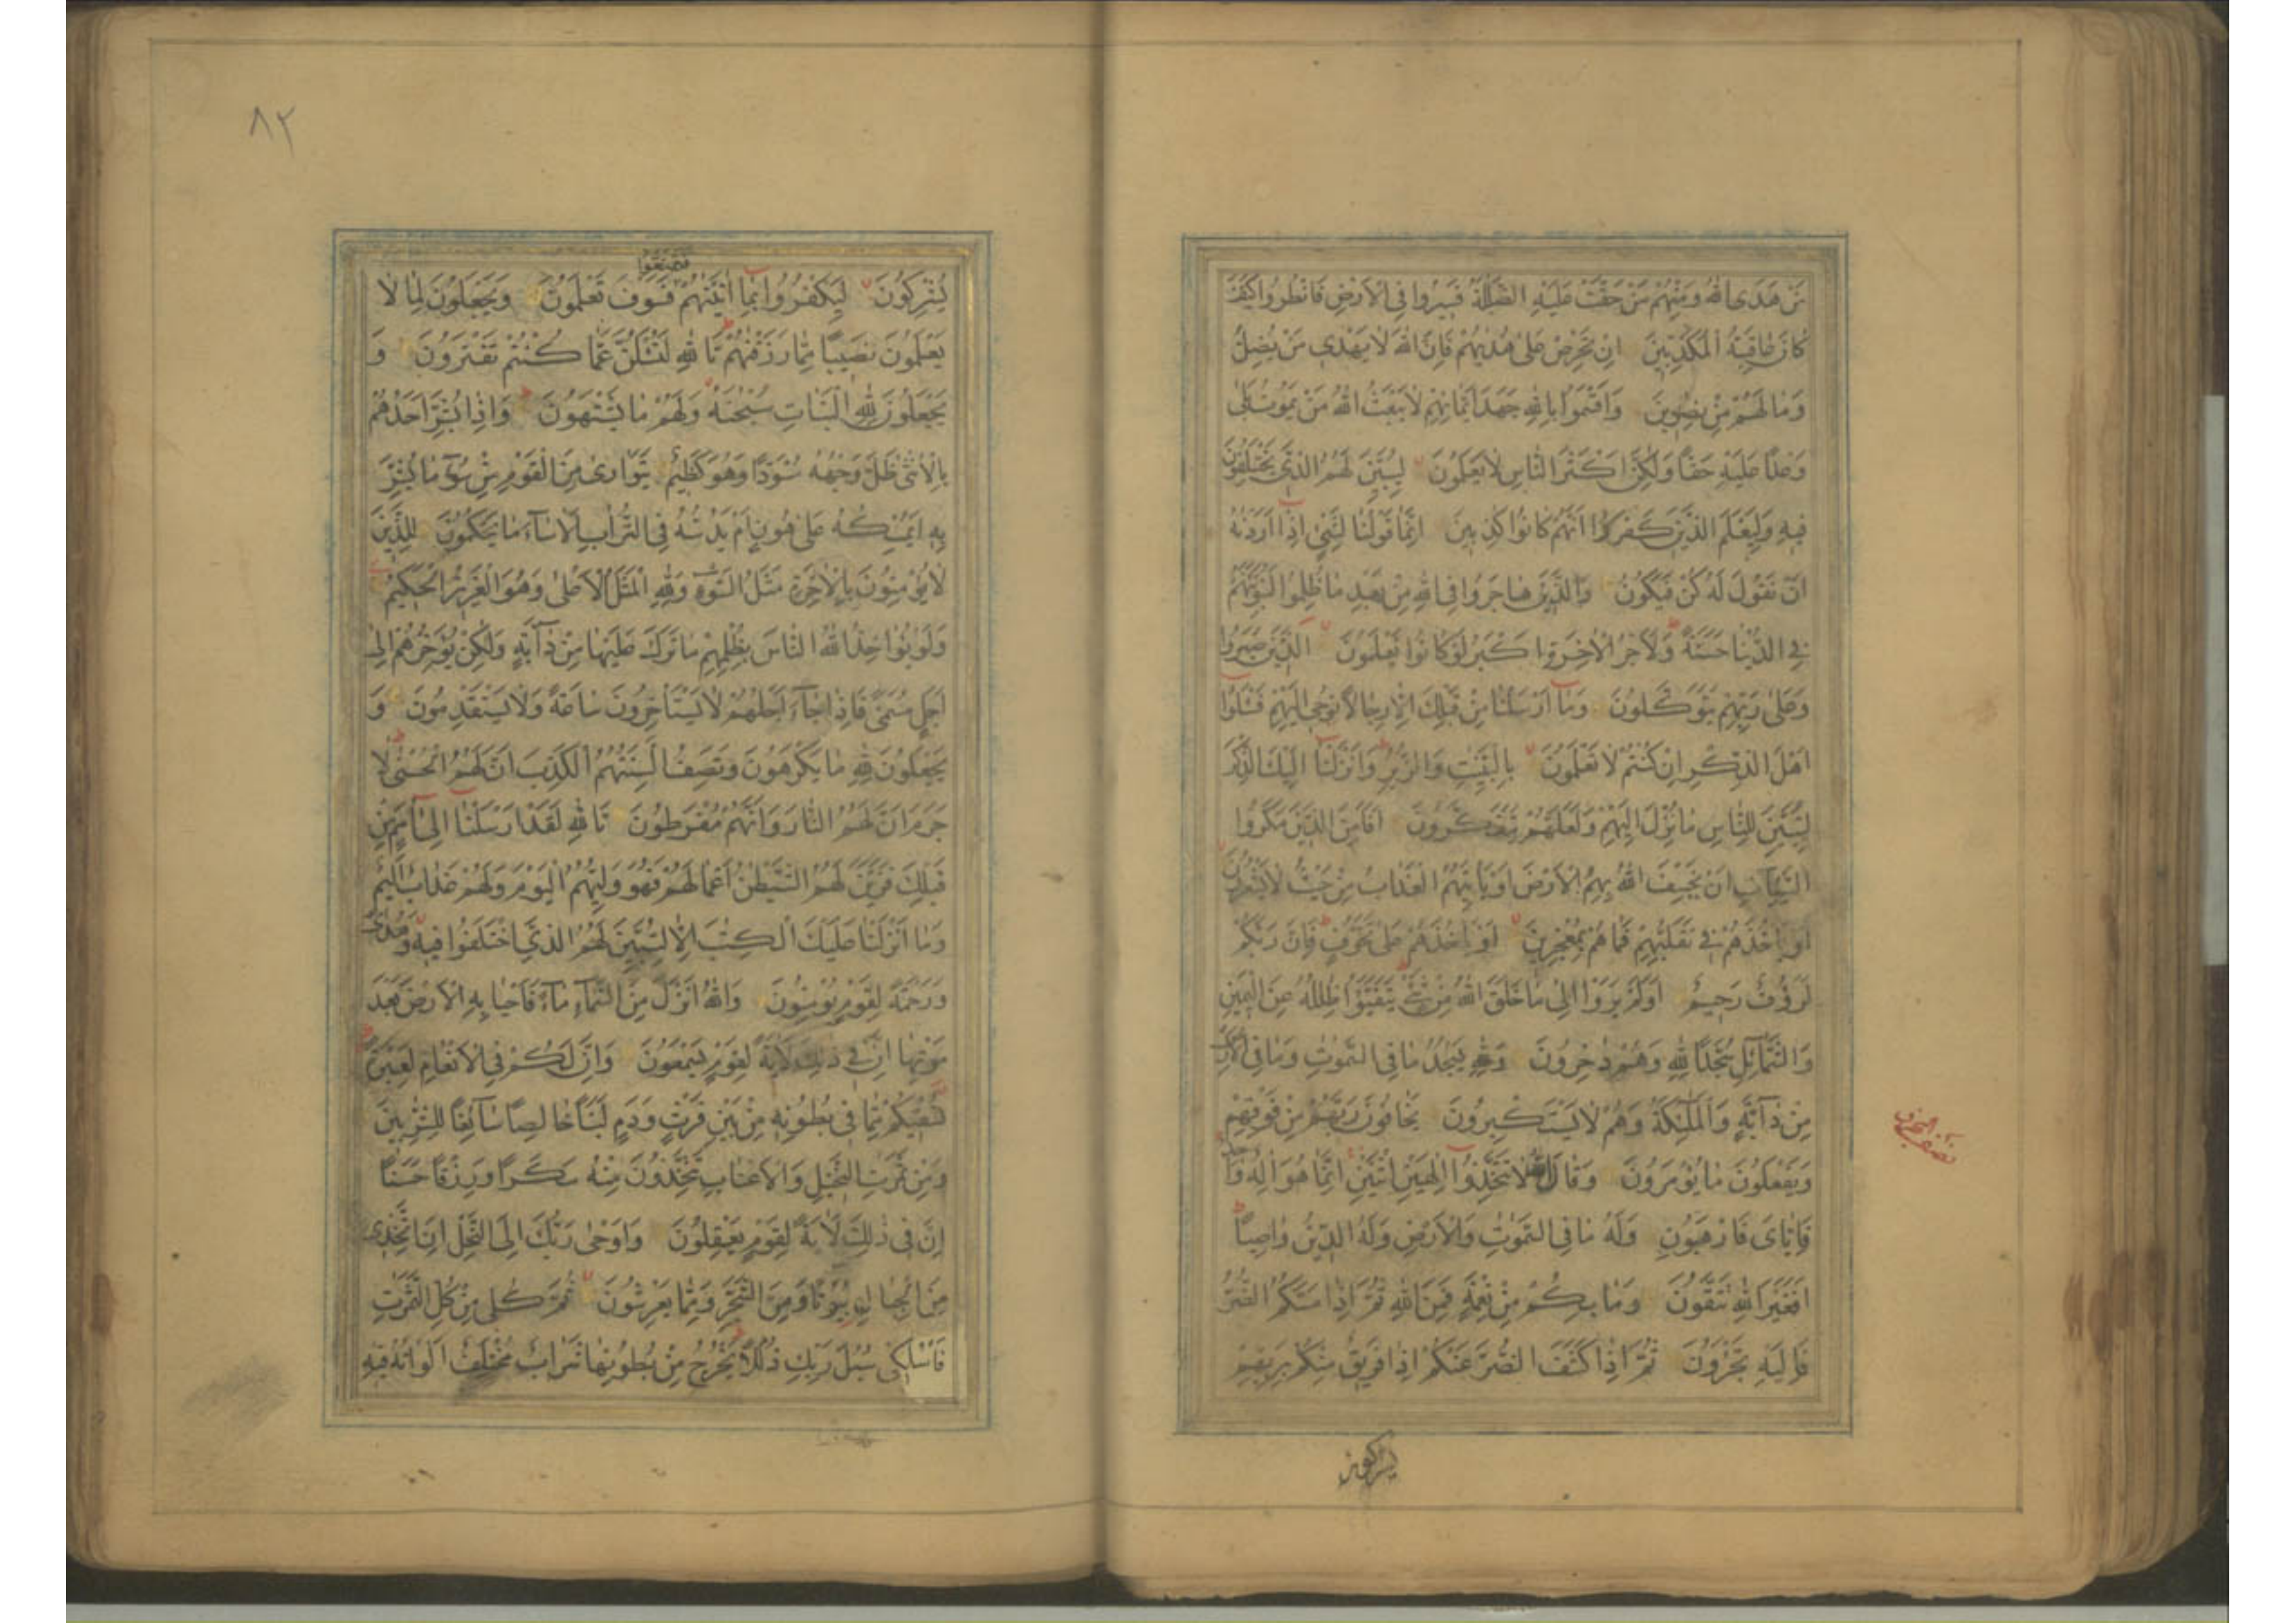 مَنْ هَدَى اللّٰهُ وَمِنْهُمْ مَنْ حَقَّتْ عَلَيْهِ الضَّلٰلَةُ فَسِيرُوا فِي الْاَرْضِ فَانْظُرُوا كَيْفَ
كَانَ عَاقِبَةُ الْمُكَذِّبِينَ اِنْ تَحْرِصْ عَلٰى هُدٰيهُمْ فَاِنَّ اللّٰهَ لَا يَهْدِي مَنْ يُضِلُّ
وَمَا لَهُمْ مِنْ نٰصِرِينَ وَاَقْسَمُوا بِاللّٰهِ جَهْدَ اَيْمَانِهِمْ لَا يَبْعَثُ اللّٰهُ مَنْ يَمُوتُ بَلٰى
وَعْدًا عَلَيْهِ حَقًّا وَلٰكِنَّ اَكْثَرَ النَّاسِ لَا يَعْلَمُونَ لِيُبَيِّنَ لَهُمُ الَّذِي يَخْتَلِفُونَ
فِيهِ وَلِيَعْلَمَ الَّذِينَ كَفَرُوا اَنَّهُمْ كَانُوا كٰذِبِينَ اِنَّمَا قَوْلُنَا لِشَيْءٍ اِذَا اَرَدْنٰهُ
اَنْ نَقُولَ لَهُ كُنْ فَيَكُونُ وَالَّذِينَ هَاجَرُوا فِي اللّٰهِ مِنْ بَعْدِ مَا ظُلِمُوا لَنُبَوِّئَنَّهُمْ
فِي الدُّنْيَا حَسَنَةً وَلَاَجْرُ الْاٰخِرَةِ اَكْبَرُ لَوْ كَانُوا يَعْلَمُونَ اَلَّذِينَ صَبَرُوا
وَعَلٰى رَبِّهِمْ يَتَوَكَّلُونَ وَمَا اَرْسَلْنَا مِنْ قَبْلِكَ اِلَّا رِجَالًا نُوحِي اِلَيْهِمْ فَسْئَلُوا
اَهْلَ الذِّكْرِ اِنْ كُنْتُمْ لَا تَعْلَمُونَ بِالْبَيِّنٰتِ وَالزُّبُرِ وَاَنْزَلْنَا اِلَيْكَ الذِّكْرَ
لِتُبَيِّنَ لِلنَّاسِ مَا نُزِّلَ اِلَيْهِمْ وَلَعَلَّهُمْ يَتَفَكَّرُونَ اَفَاَمِنَ الَّذِينَ مَكَرُوا
السَّيِّاٰتِ اَنْ يَخْسِفَ اللّٰهُ بِهِمُ الْاَرْضَ اَوْ يَاْتِيَهُمُ الْعَذَابُ مِنْ حَيْثُ لَا يَشْعُرُونَ
اَوْ يَاْخُذَهُمْ فِي تَقَلُّبِهِمْ فَمَا هُمْ بِمُعْجِزِينَ اَوْ يَاْخُذَهُمْ عَلٰى تَخَوُّفٍ فَاِنَّ رَبَّكُمْ
لَرَؤُفٌ رَحِيمٌ اَوَلَمْ يَرَوْا اِلٰى مَا خَلَقَ اللّٰهُ مِنْ شَيْءٍ يَتَفَيَّؤُا ظِلٰلُهُ عَنِ الْيَمِينِ
وَالشَّمَائِلِ سُجَّدًا لِلّٰهِ وَهُمْ دٰخِرُونَ وَلِلّٰهِ يَسْجُدُ مَا فِي السَّمٰوٰتِ وَمَا فِي الْاَرْضِ
مِنْ دَابَّةٍ وَالْمَلٰئِكَةُ وَهُمْ لَا يَسْتَكْبِرُونَ يَخَافُونَ رَبَّهُمْ مِنْ فَوْقِهِمْ
وَيَفْعَلُونَ مَا يُؤْمَرُونَ وَقَالَ اللّٰهُ لَا تَتَّخِذُوا اِلٰهَيْنِ اثْنَيْنِ اِنَّمَا هُوَ اِلٰهٌ وَاحِدٌ
فَاِيَّايَ فَارْهَبُونِ وَلَهُ مَا فِي السَّمٰوٰتِ وَالْاَرْضِ وَلَهُ الدِّينُ وَاصِبًا
اَفَغَيْرَ اللّٰهِ تَتَّقُونَ وَمَا بِكُمْ مِنْ نِعْمَةٍ فَمِنَ اللّٰهِ ثُمَّ اِذَا مَسَّكُمُ الضُّرُّ
فَاِلَيْهِ تَجْئَرُونَ ثُمَّ اِذَا كَشَفَ الضُّرَّ عَنْكُمْ اِذَا فَرِيقٌ مِنْكُمْ بِرَبِّهِمْ
يشركون
٨٢
فَتَمَتَّعُوا
يُشْرِكُونَ لِيَكْفُرُوا بِمَا اٰتَيْنٰهُمْ فَسَوْفَ تَعْلَمُونَ وَيَجْعَلُونَ لِمَا لَا
يَعْلَمُونَ نَصِيبًا مِمَّا رَزَقْنٰهُمْ تَاللّٰهِ لَتُسْئَلُنَّ عَمَّا كُنْتُمْ تَفْتَرُونَ وَ
يَجْعَلُونَ لِلّٰهِ الْبَنَاتِ سُبْحٰنَهُ وَلَهُمْ مَا يَشْتَهُونَ وَاِذَا بُشِّرَ اَحَدُهُمْ
بِالْاُنْثٰى ظَلَّ وَجْهُهُ مُسْوَدًّا وَهُوَ كَظِيمٌ يَتَوَارٰى مِنَ الْقَوْمِ مِنْ سُوءِ مَا بُشِّرَ
بِهِ اَيُمْسِكُهُ عَلٰى هُونٍ اَمْ يَدُسُّهُ فِي التُّرَابِ اَلَا سَاءَ مَا يَحْكُمُونَ لِلَّذِينَ
لَا يُؤْمِنُونَ بِالْاٰخِرَةِ مَثَلُ السَّوْءِ وَلِلّٰهِ الْمَثَلُ الْاَعْلٰى وَهُوَ الْعَزِيزُ الْحَكِيمُ
وَلَوْ يُؤَاخِذُ اللّٰهُ النَّاسَ بِظُلْمِهِمْ مَا تَرَكَ عَلَيْهَا مِنْ دَابَّةٍ وَلٰكِنْ يُؤَخِّرُهُمْ اِلٰى
اَجَلٍ مُسَمًّى فَاِذَا جَاءَ اَجَلُهُمْ لَا يَسْتَاْخِرُونَ سَاعَةً وَلَا يَسْتَقْدِمُونَ وَ
يَجْعَلُونَ لِلّٰهِ مَا يَكْرَهُونَ وَتَصِفُ اَلْسِنَتُهُمُ الْكَذِبَ اَنَّ لَهُمُ الْحُسْنٰى لَا
جَرَمَ اَنَّ لَهُمُ النَّارَ وَاَنَّهُمْ مُفْرَطُونَ تَاللّٰهِ لَقَدْ اَرْسَلْنَا اِلٰى اُمَمٍ مِنْ
قَبْلِكَ فَزَيَّنَ لَهُمُ الشَّيْطٰنُ اَعْمَالَهُمْ فَهُوَ وَلِيُّهُمُ الْيَوْمَ وَلَهُمْ عَذَابٌ اَلِيمٌ
وَمَا اَنْزَلْنَا عَلَيْكَ الْكِتٰبَ اِلَّا لِتُبَيِّنَ لَهُمُ الَّذِي اخْتَلَفُوا فِيهِ وَهُدًى
وَرَحْمَةً لِقَوْمٍ يُؤْمِنُونَ وَاللّٰهُ اَنْزَلَ مِنَ السَّمَاءِ مَاءً فَاَحْيَا بِهِ الْاَرْضَ بَعْدَ
مَوْتِهَا اِنَّ فِي ذٰلِكَ لَاٰيَةً لِقَوْمٍ يَسْمَعُونَ وَاِنَّ لَكُمْ فِي الْاَنْعَامِ لَعِبْرَةً
نُسْقِيكُمْ مِمَّا فِي بُطُونِهِ مِنْ بَيْنِ فَرْثٍ وَدَمٍ لَبَنًا خَالِصًا سَائِغًا لِلشّٰرِبِينَ
وَمِنْ ثَمَرٰتِ النَّخِيلِ وَالْاَعْنَابِ تَتَّخِذُونَ مِنْهُ سَكَرًا وَرِزْقًا حَسَنًا
اِنَّ فِي ذٰلِكَ لَاٰيَةً لِقَوْمٍ يَعْقِلُونَ وَاَوْحٰى رَبُّكَ اِلَى النَّحْلِ اَنِ اتَّخِذِي
مِنَ الْجِبَالِ بُيُوتًا وَمِنَ الشَّجَرِ وَمِمَّا يَعْرِشُونَ ثُمَّ كُلِي مِنْ كُلِّ الثَّمَرٰتِ
فَاسْلُكِي سُبُلَ رَبِّكِ ذُلُلًا يَخْرُجُ مِنْ بُطُونِهَا شَرَابٌ مُخْتَلِفٌ اَلْوَانُهُ فِيهِ